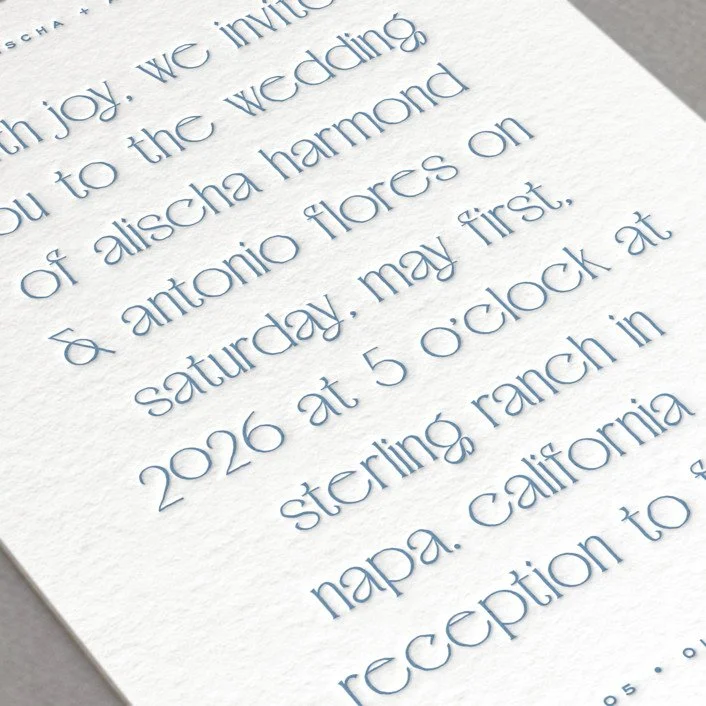 ischa + a
th joy, we invite
ou to the wedding
of alischa harmond
& antonio flores on
saturday, may first,
2026 at 5 o'clock at
sterling ranch in
napa. california
reception to f
05 • 01